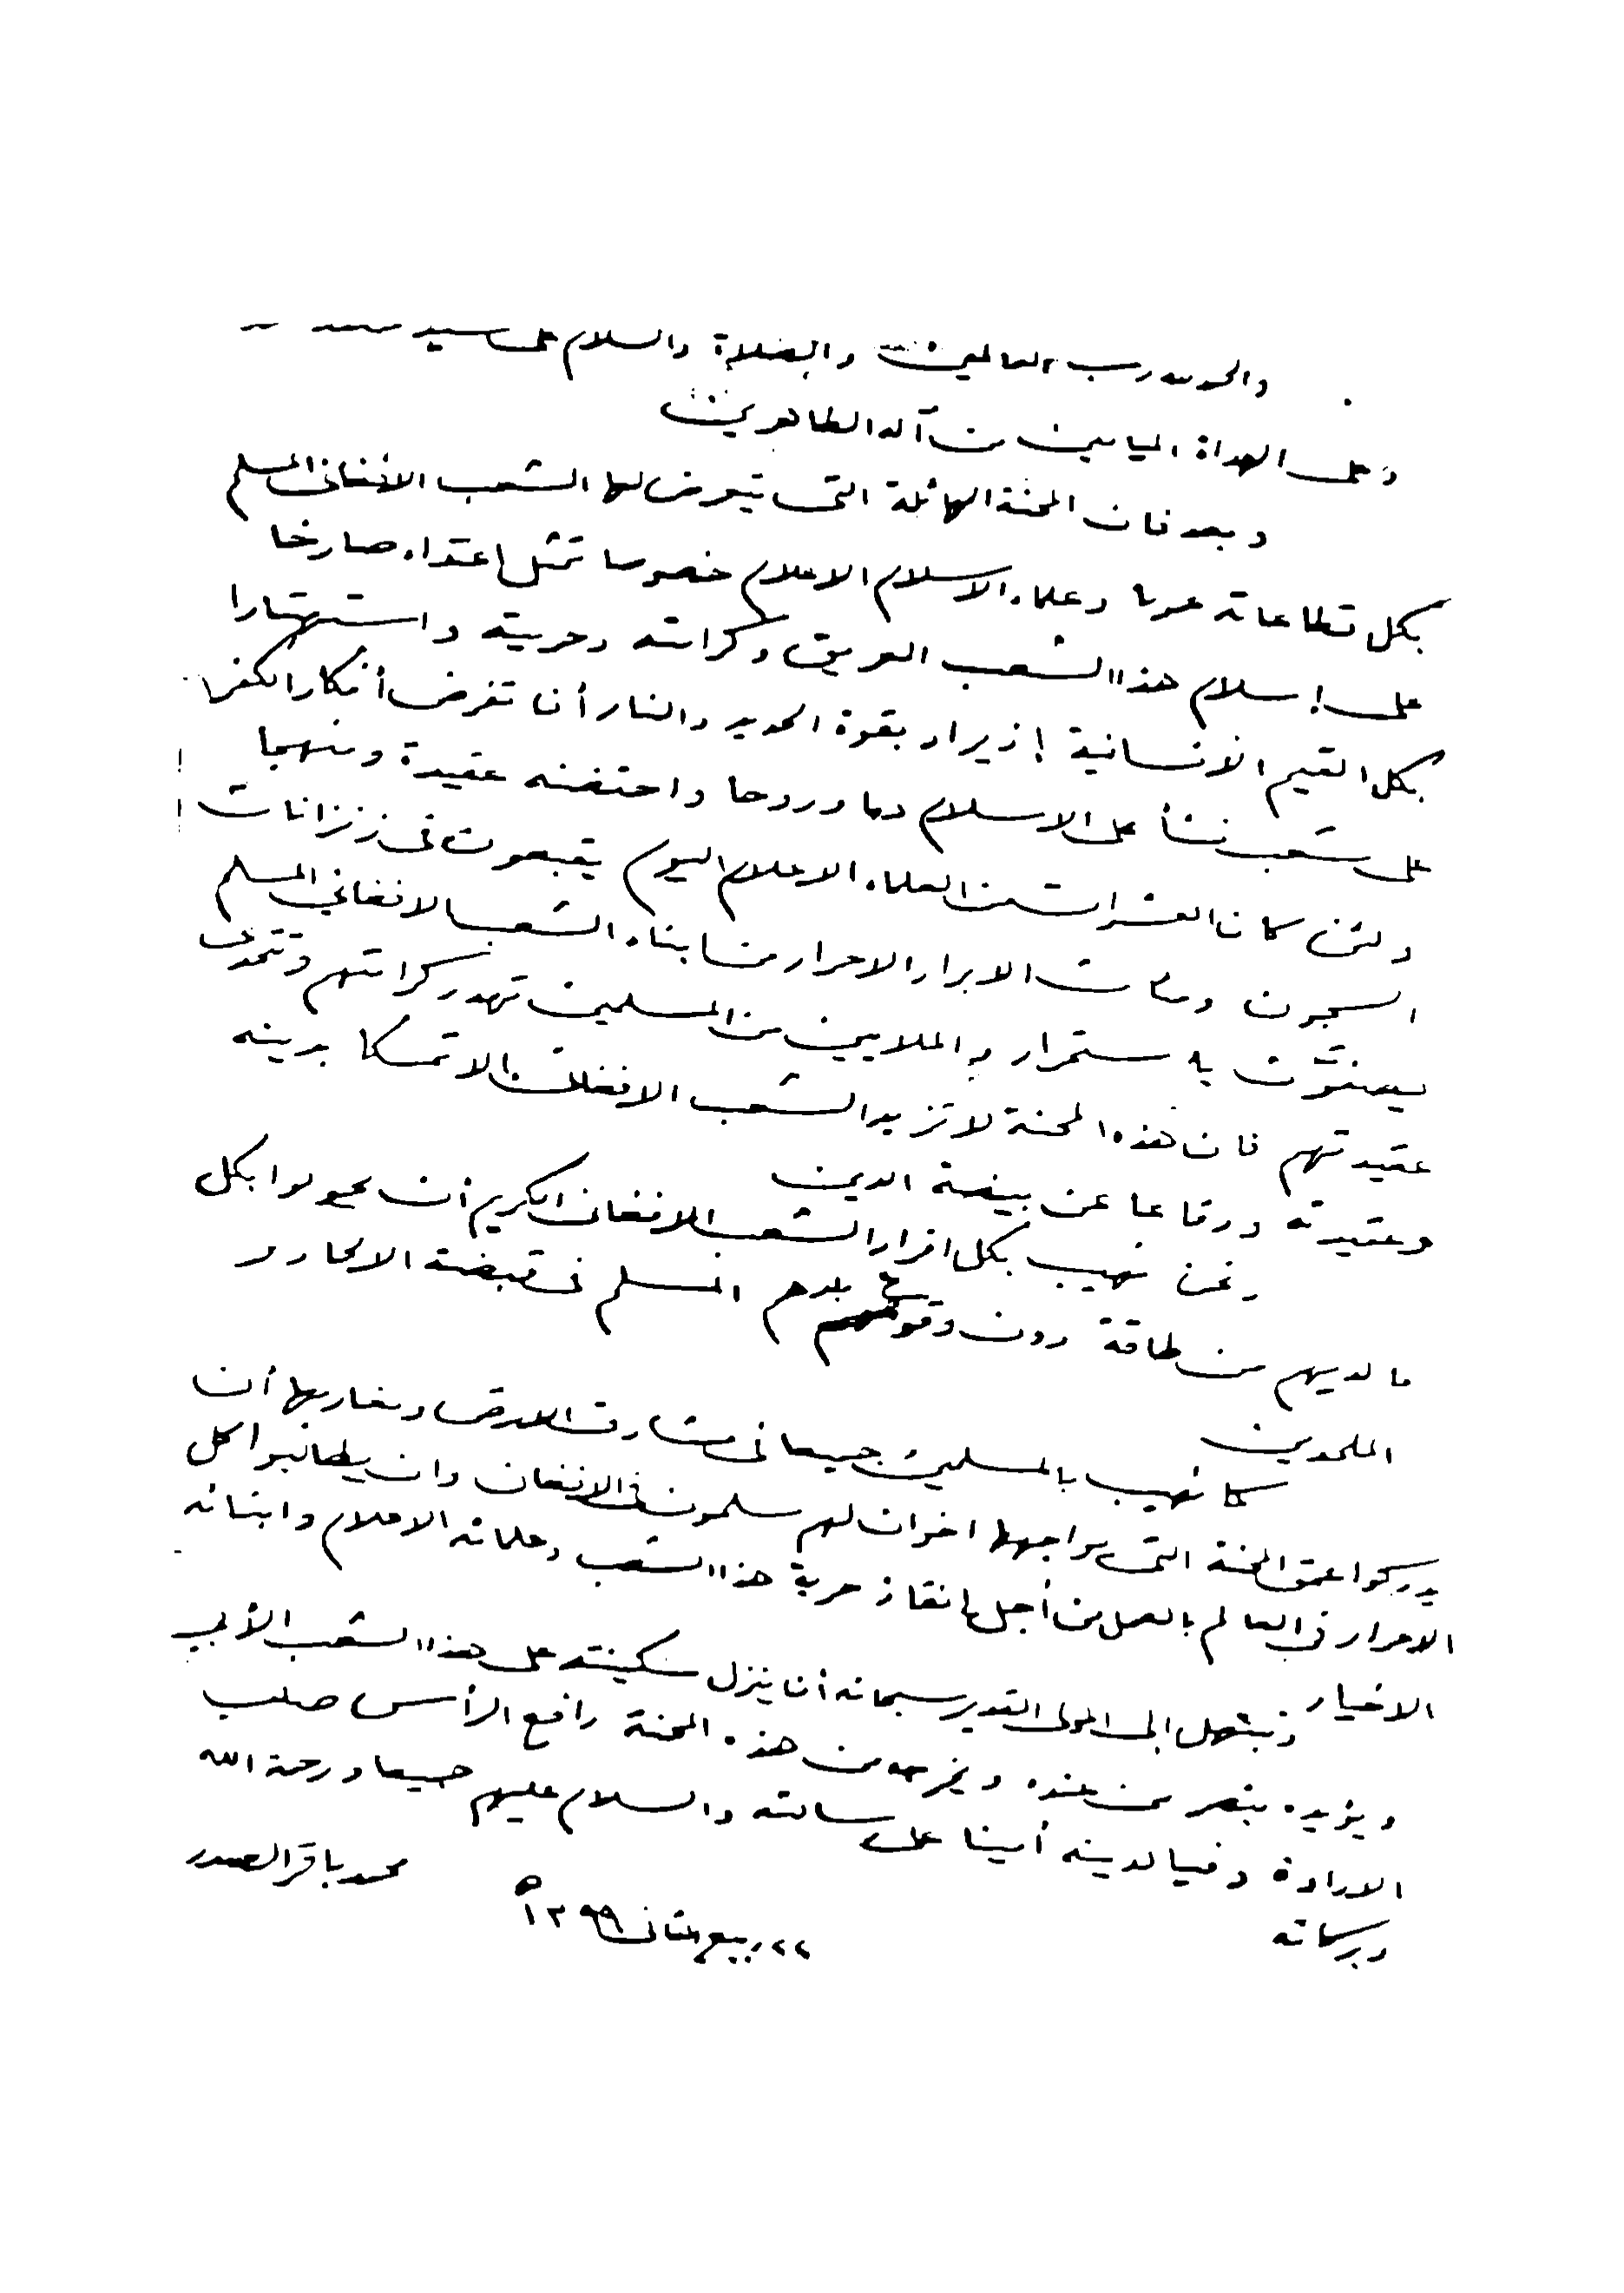 والحمد لله رب العالمين والصلاة والسلام على سيد
وعلى الهداة الميامين من آله الطاهرين
وبعد فان المحنة الهائلة التي يتعرض لها الشعب الأفغاني المسلم
بكل قطاعاته عموما وعلماء الاسلام الاعلام خصوصا تمثل اعتداء صارخا
على إسلام هذا الشعب العريق وكرامته وحريته واستهتارا
بكل القيم الانسانية إذ يراد بقوة الحديد والنار أن تفرض أفكار الكفر
على شعب نشأ على الاسلام دما وروحا واحتضنه عقيدة ومنهجا
ولئن كان العشرات من العلماء الاعلام اليوم يقبعون في زنزانات
السجون ومئات الابرار الاحرار من ابناء الشعب الافغاني المسلم
يصفون باستمرار والملايين من المسلمين تهدر كرامتهم وتتحدى
عقيدتهم فان هذه المحنة لا تزيد الشعب الافغاني الا تمسكا بدينه
وعقيدته ودفاعا عن بيضة الدين
ونحن نهيب بكل افراد الشعب الافغاني الكريم أن يحولوا بكل
ما لديهم من طاقة دون وقوع بلدهم المسلم في قبضة الالحاد و
الملحدين
كما نهيب بالمسلمين جميعا في مشارق الارض ومغاربها أن
يدركوا عمق المحنة التي يواجهها اخوان لهم مسلمون في الافغان وان يطالبوا كل
الاحرار في العالم بالعمل من أجل انقاذ حرية هذا الشعب وعلمائه الاعلام وابنائه
الاخيار
ونبتهل إلى المولى القدير سبحانه أن ينزل سكينته على هذا الشعب الأبي
ويؤيده بنصر من عنده ويخرجه من هذه المحنة رافع الرأس صلب
الارادة وفيا لدينه أمينا على رسالته والسلام عليهم جميعا ورحمة الله
وبركاته
محمد باقر الصدر
٢٢ ربيع الثاني ١٣٩٩ ه